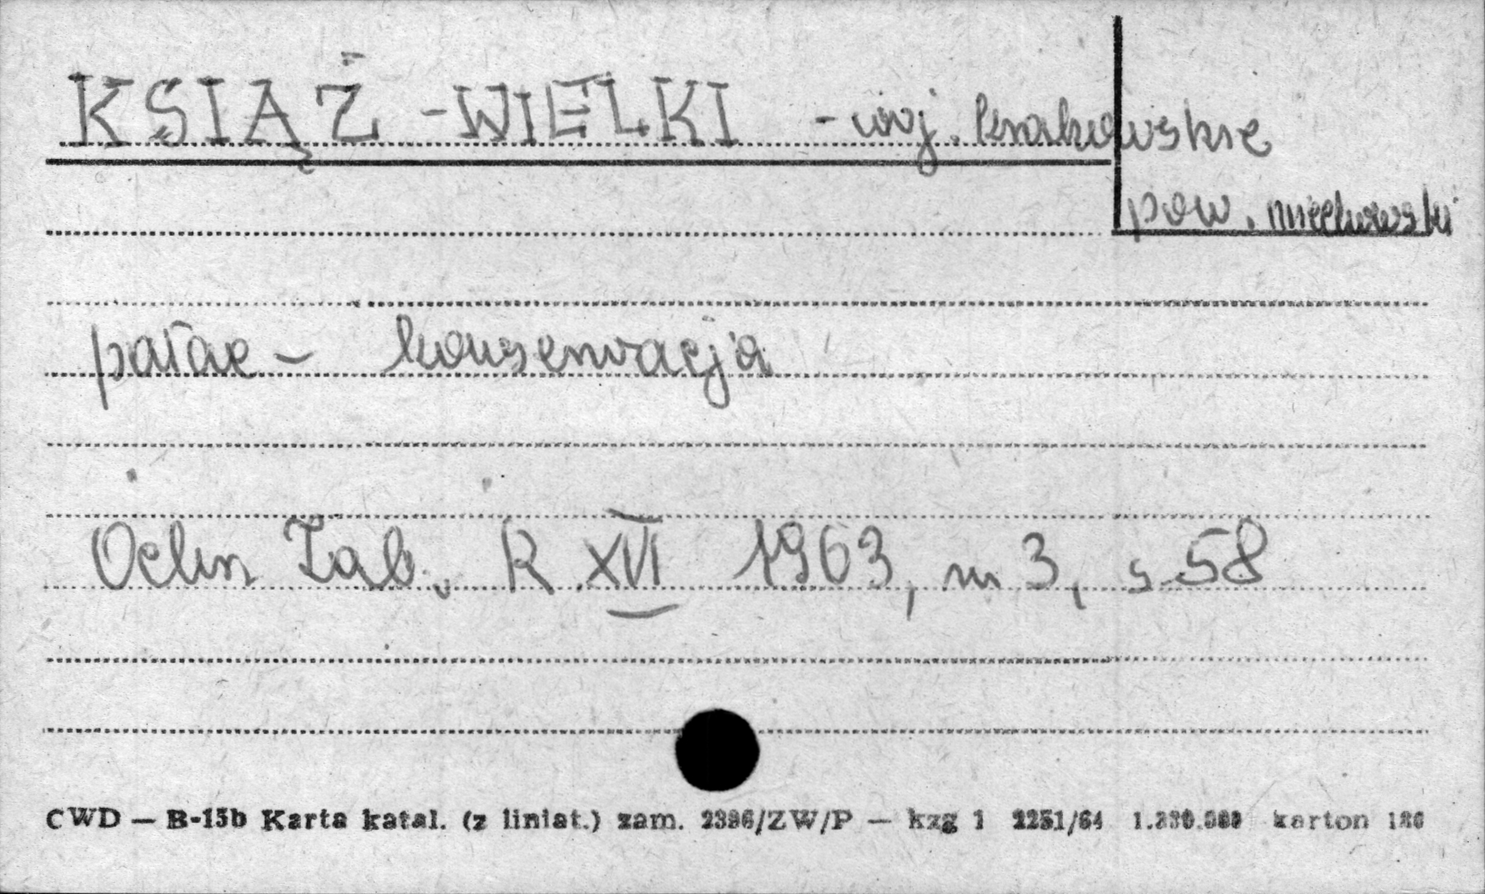 KSIĄŻ-WIELKI - woj. krakowskie
pow. miechowski
pałac - konserwacja
Ochr Zab. R XVI 1963, nr 3, s. 58
CWD — B-15b Karta katal. (z liniat.) zam. 2396/ZW/P — kzg 1 2251/64 karton